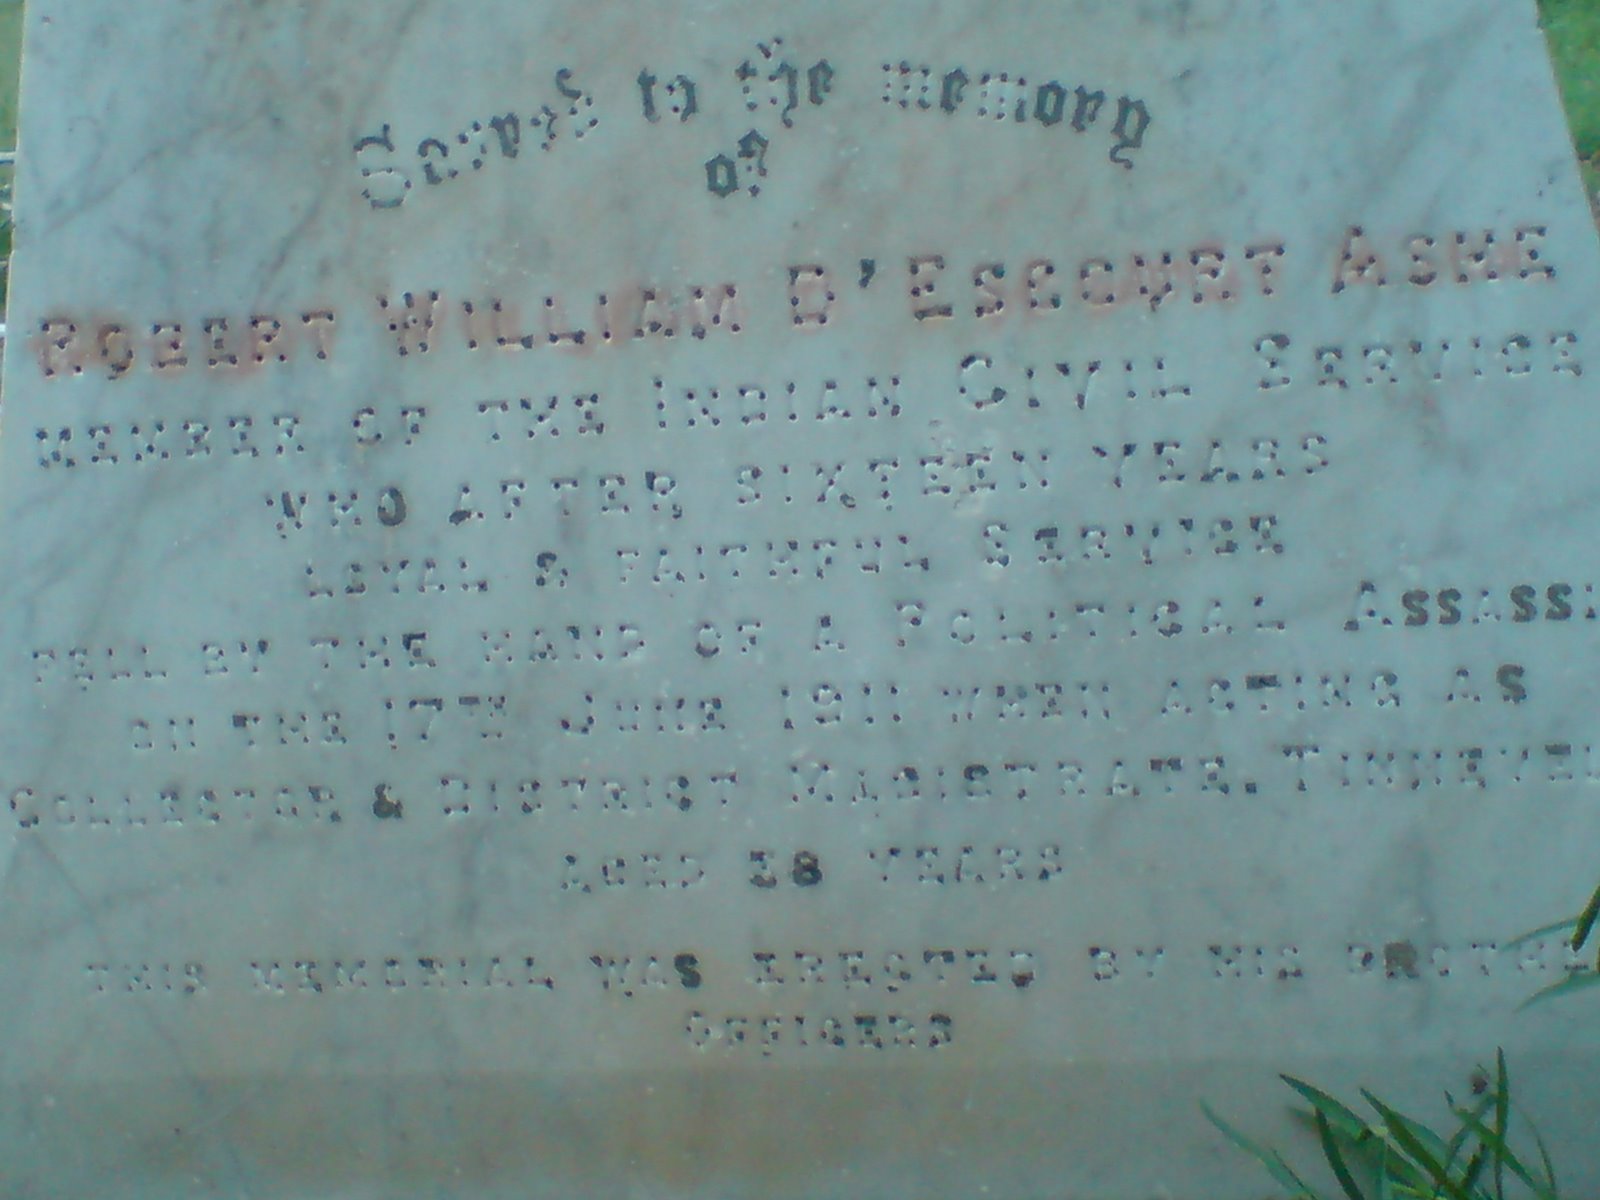 Sacred to the memory
of
ROBERT WILLIAM D'ESCOURT ASHE
MEMBER OF THE INDIAN CIVIL SERVICE
WHO AFTER SIXTEEN YEARS
LOYAL & FAITHFUL SERVICE
FELL BY THE HAND OF A POLITICAL ASSASSI
ON THE 17TH JUNE 1911 WHEN ACTING AS
COLLECTOR & DISTRICT MAGISTRATE. TINNEVEL
AGED 38 YEARS
THIS MEMORIAL WAS ERECTED BY HIS BROTHE
OFFICERS